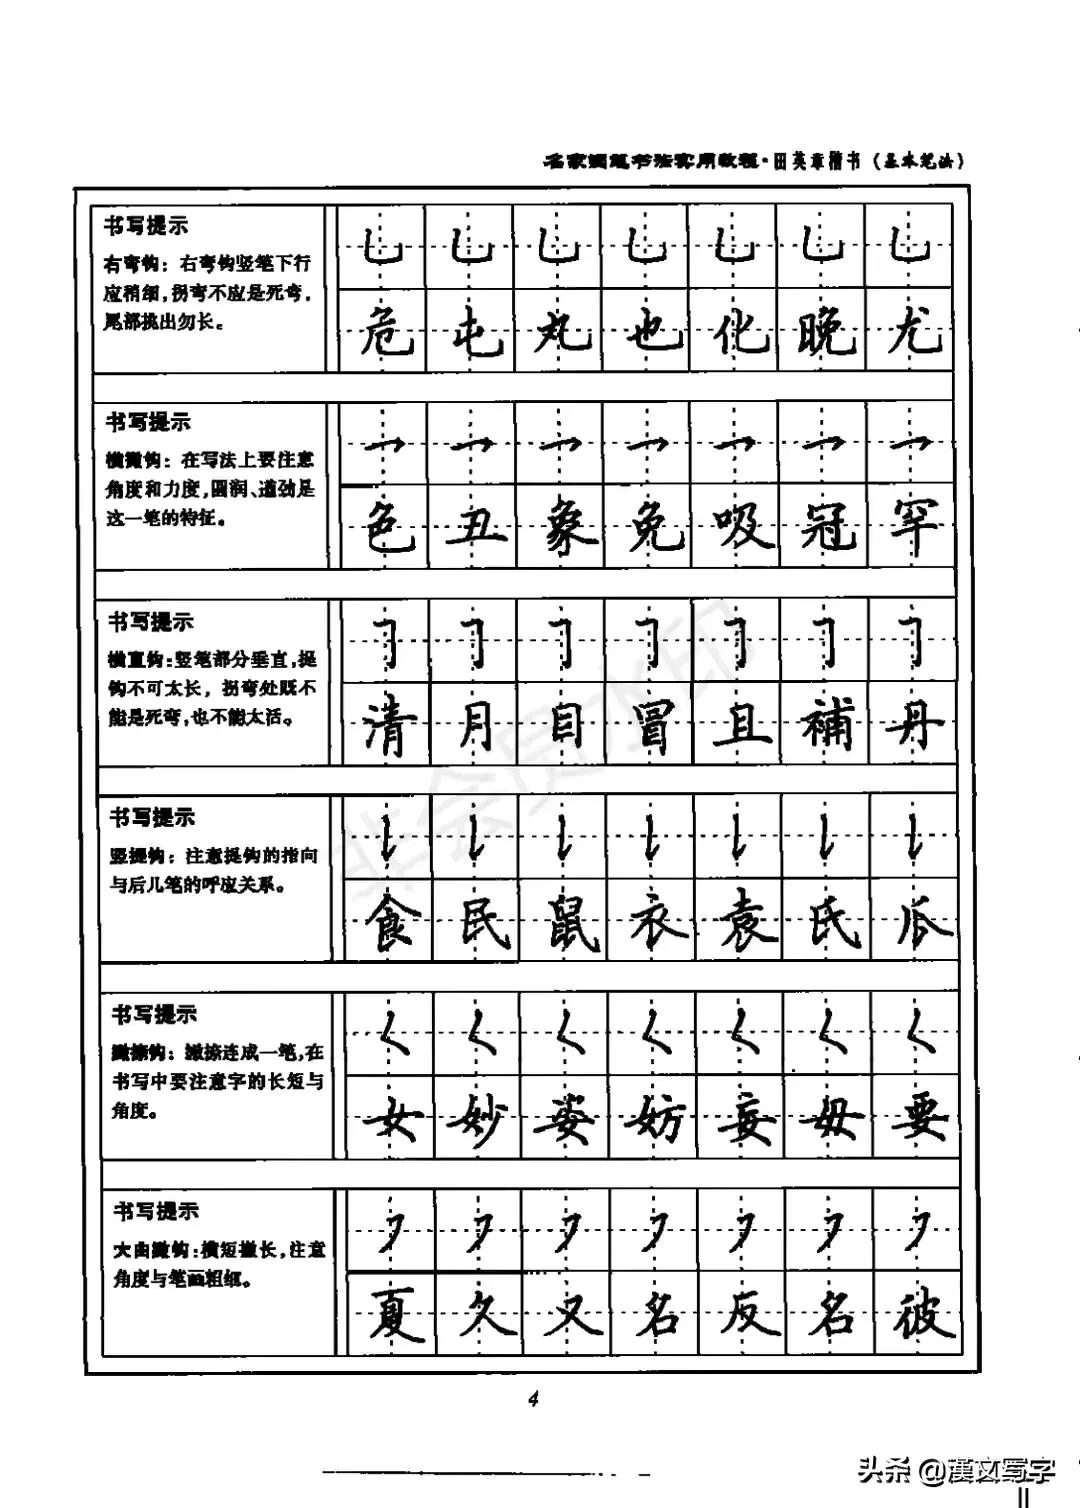 名家钢笔书法实用教程·田英章楷书（基本笔法）
书写提示
右弯钩：右弯钩竖笔下行
应稍细，拐弯不应是死弯，
尾部挑出勿长。
乚 乚 乚 乚 乚 乚 乚
危 屯 丸 也 化 晚 尤
书写提示
横撇钩：在写法上要注意
角度和力度，圆润、遒劲是
这一笔的特征。
乛 乛 乛 乛 乛 乛 乛
色 丑 象 免 吸 冠 罕
书写提示
横直钩：竖笔部分垂直，提
钩不可太长，拐弯处既不
能是死弯，也不能太活。
㇆ ㇆ ㇆ ㇆ ㇆ ㇆ ㇆
清 月 目 冒 且 補 丹
书写提示
竖提钩：注意提钩的指向
与后几笔的呼应关系。
㇙ ㇙ ㇙ ㇙ ㇙ ㇙ ㇙
食 民 鼠 衣 袁 氏 瓜
书写提示
撇捺钩：撇捺连成一笔，在
书写中要注意字的长短与
角度。
㇛ ㇛ ㇛ ㇛ ㇛ ㇛ ㇛
女 妙 姿 妨 妄 毋 要
书写提示
大曲撇钩：横短撇长，注意
角度与笔画粗细。
㇇ ㇇ ㇇ ㇇ ㇇ ㇇ ㇇
夏 久 又 名 反 名 彼
非会员水印
4
头条 @漢文写字